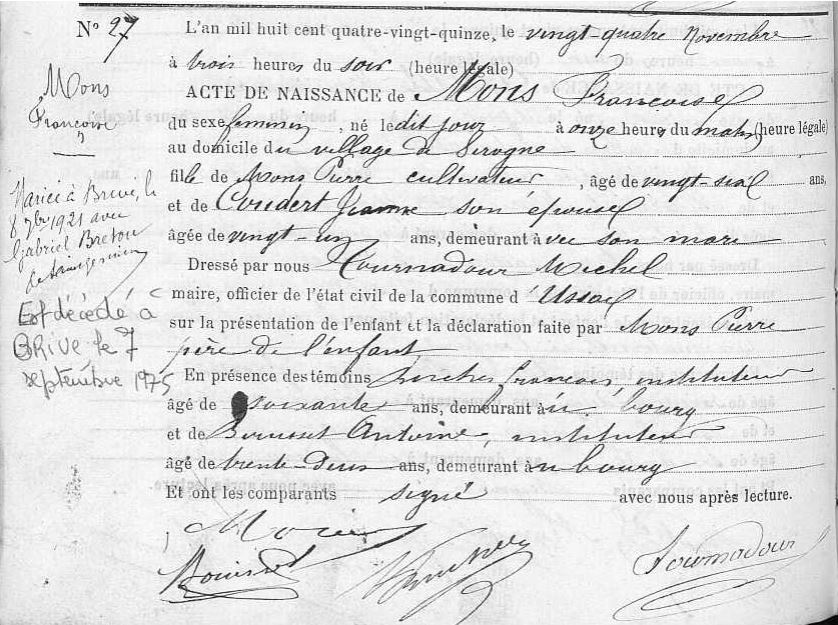 N° 27
Mons
Françoise
Mariée à Brive, le
8 9bre 1921 avec
Gabriel Breton
Est décédé à
BRIVE le 7
septembre 1975
L'an mil huit cent quatre-vingt-quinze, le vingt-quatre Novembre
à trois heures du soir (heure légale)
ACTE DE NAISSANCE de Mons Françoise
du sexe féminin, né le dit jour à onze heures du matin (heure légale)
au domicile du village de
fille de Mons Pierre cultivateur, âgé de vingt-six ans,
et de Coudert Jeanne son épouse
âgée de vingt-un ans, demeurant avec son mari
Dressé par nous Tournadour Michel
maire, officier de l'état civil de la commune d'Ussac
sur la présentation de l'enfant et la déclaration faite par Mons Pierre
père de l'enfant
En présence des témoins François, instituteur
âgé de soixante ans, demeurant au bourg
et de Antoine, instituteur
âgé de trente-deux ans, demeurant au bourg
Et ont les comparants signé avec nous après lecture.
Tournadour